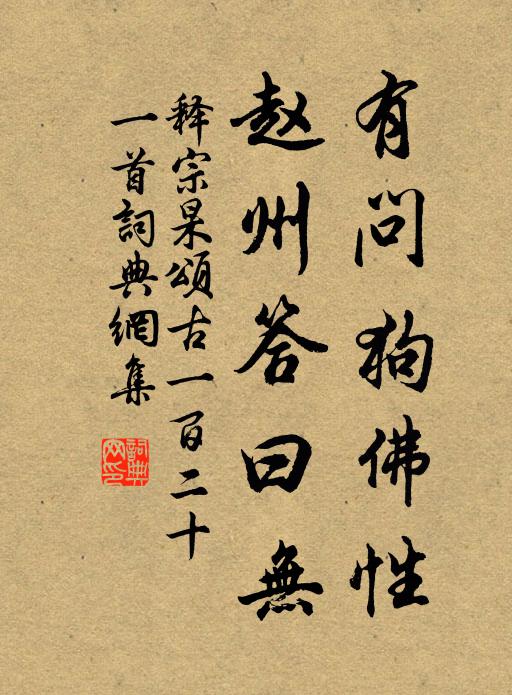 有問狗佛性
赵州答曰無
释宗杲頌古一百二十
一首詞典網集
詞典
网印